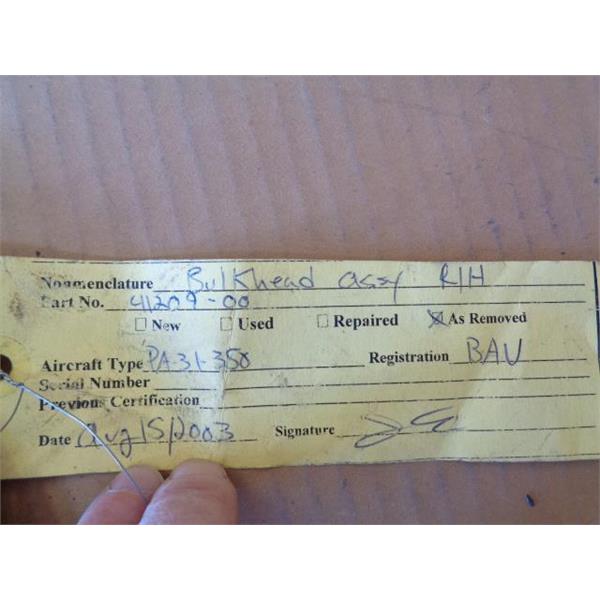 Nomenclature Bulkhead assy R/H
Part No. 41209-00
☐ New ☐ Used ☐ Repaired ☒ As Removed
Aircraft Type PA31-350 Registration BAU
Serial Number
Previous Certification
Date Aug 15/2003 Signature